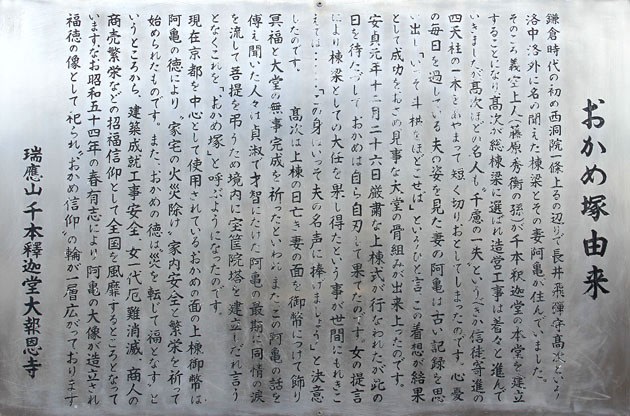 おかめ塚由来
鎌倉時代の初め西洞院一條上るの辺りで長井飛驒守髙次という
洛中洛外に名の聞えた棟梁とその妻阿亀が住んでいました。
そのころ義空上人(藤原秀衡の孫)が千本釈迦堂の本堂を建立
することになり髙次が総棟梁に選ばれ造営工事は着々と進んで
いきましたが髙次ほどの名人も"千慮の一失"というべきか信徒寄進の
四天柱の一本をあやまって短く切りおとしてしまったのです。心憂
の毎日を過している夫の姿を見た妻の阿亀は古い記録を思
い出し、"いっそ斗栱をほどこせば"というひと言この着想が結果
として成功をおさめ見事な大堂の骨組みが出来上ったのです。
安貞元年十二月二十六日厳粛な上棟式が行なわれたが此の
日を待たずしておかめは自ら自刃して果てたのです。女の提言
により棟梁としての大任を果し得たという事が世間にもれきこ
えては‥‥「この身はいっそ夫の名声に捧げましょう」と決意
したのです。　髙次は上棟の日亡き妻の面を御幣につけて飾り
冥福と大堂の無事完成を祈ったといわれ、またこの阿亀の話を
傳え聞いた人々は貞淑で才智にたけた阿亀の最期に同情の涙
を流して菩提を弔うため境内に宝筐院塔を建立しだれ言う
となくこれを「おかめ塚」と呼ぶようになったのです。
現在京都を中心として使用されているおかめの面の上棟御幣は
阿亀の徳により、家宅の火災除け、家内安全と繁栄を祈って
始められたものです。また、おかめの徳は"災を転じて福となす"と
いうところから、建築成就工事安全、女一代厄難消滅、商人の
商売繁栄などの招福信仰として全国を風靡するところとなって
いますなお昭和五十四年の春有志により、阿亀の大像が造立され
福徳の像として祀られ"おかめ信仰"の輪が一層広がっております
瑞應山千本釋迦堂大報恩寺